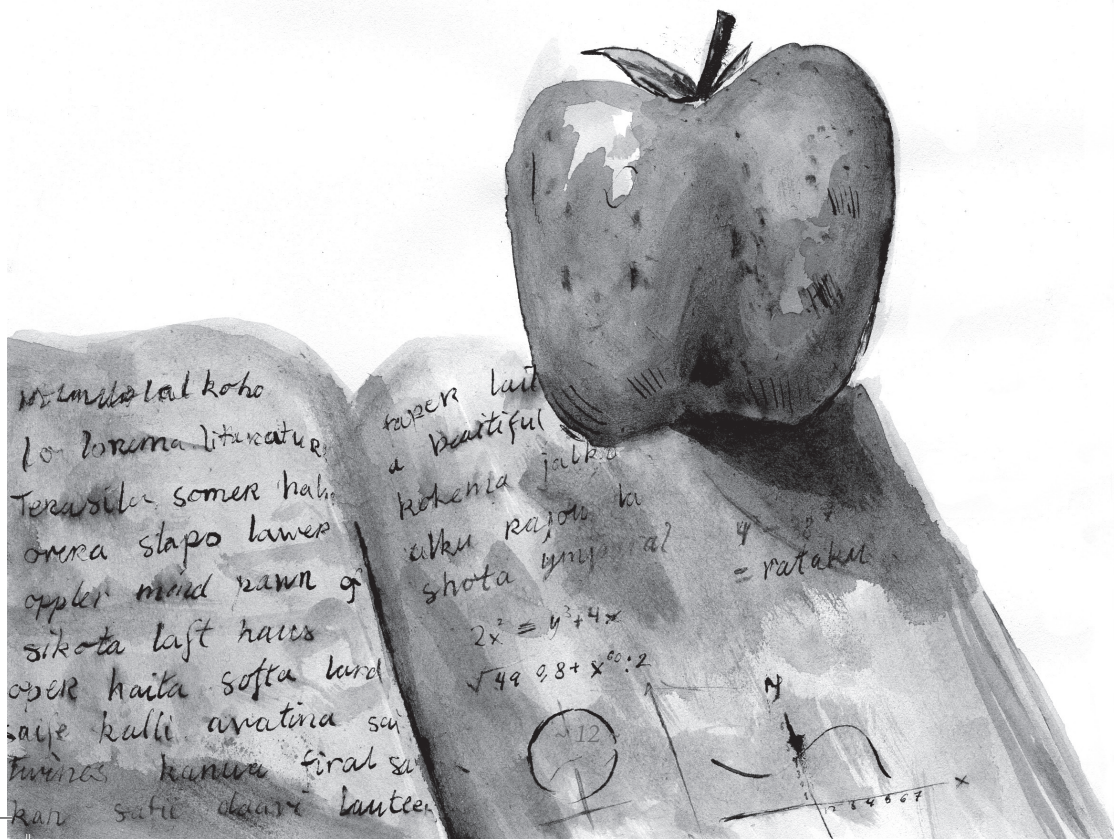 lo lorema literatur
Terasila somer
orera slapo lawer
oppler meid pawn of
sikota laft haus
oper haita softa land
saije kalli avatina sai
twines kanwa firal sa
kan satie daari lauteen
raper lait
a beautiful
kohenta jalko
alku rajon la
shota
= rataku
2x² = y³+4x
√49 0,8+ x⁶⁰:2
12
y
x
2 3 4 5 6 7